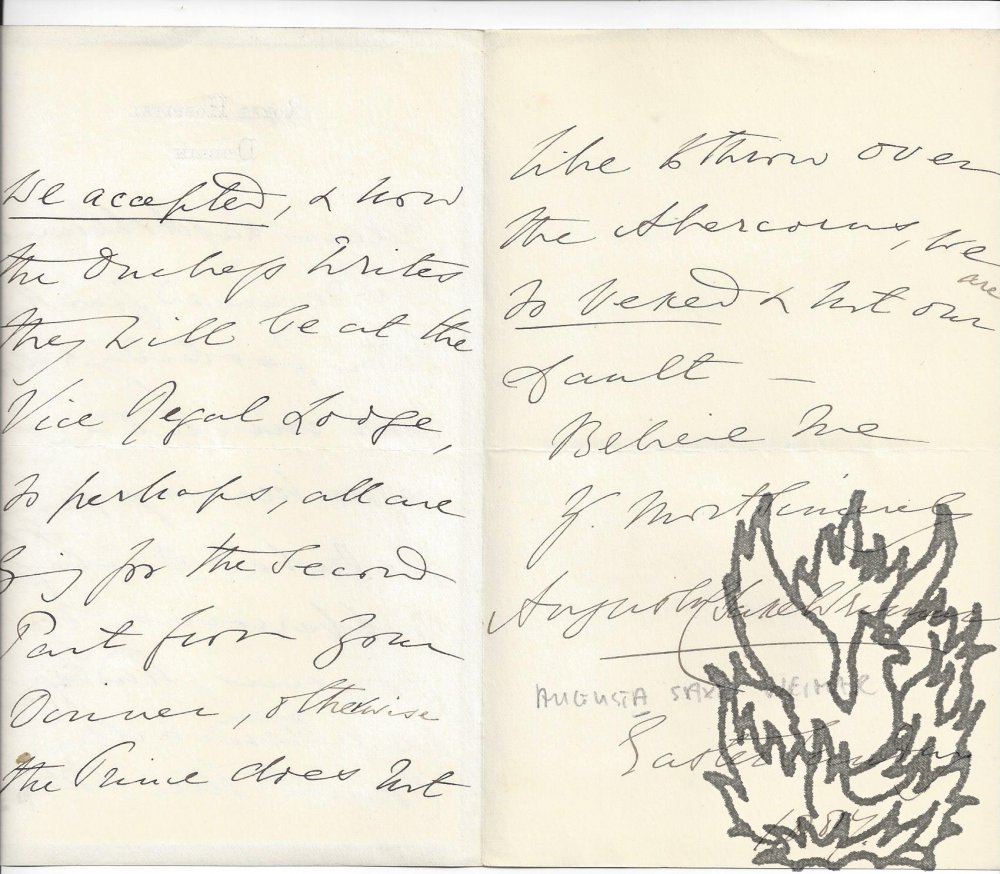 ROYAL HOSPITAL
DUBLIN
We accepted, & now
the Duchess writes
they will be at the
Vice Regal Lodge,
so perhaps, all are
going for the Second
Part from your
Dinner, otherwise
the Prince does not
like to throw over
the Abercorns, we
are
so vexed & not our
fault —
Believe Me
Y. Most Sincerely
Augusta Saxe Weimar
AUGUSTA SAXE WEIMAR
Easter